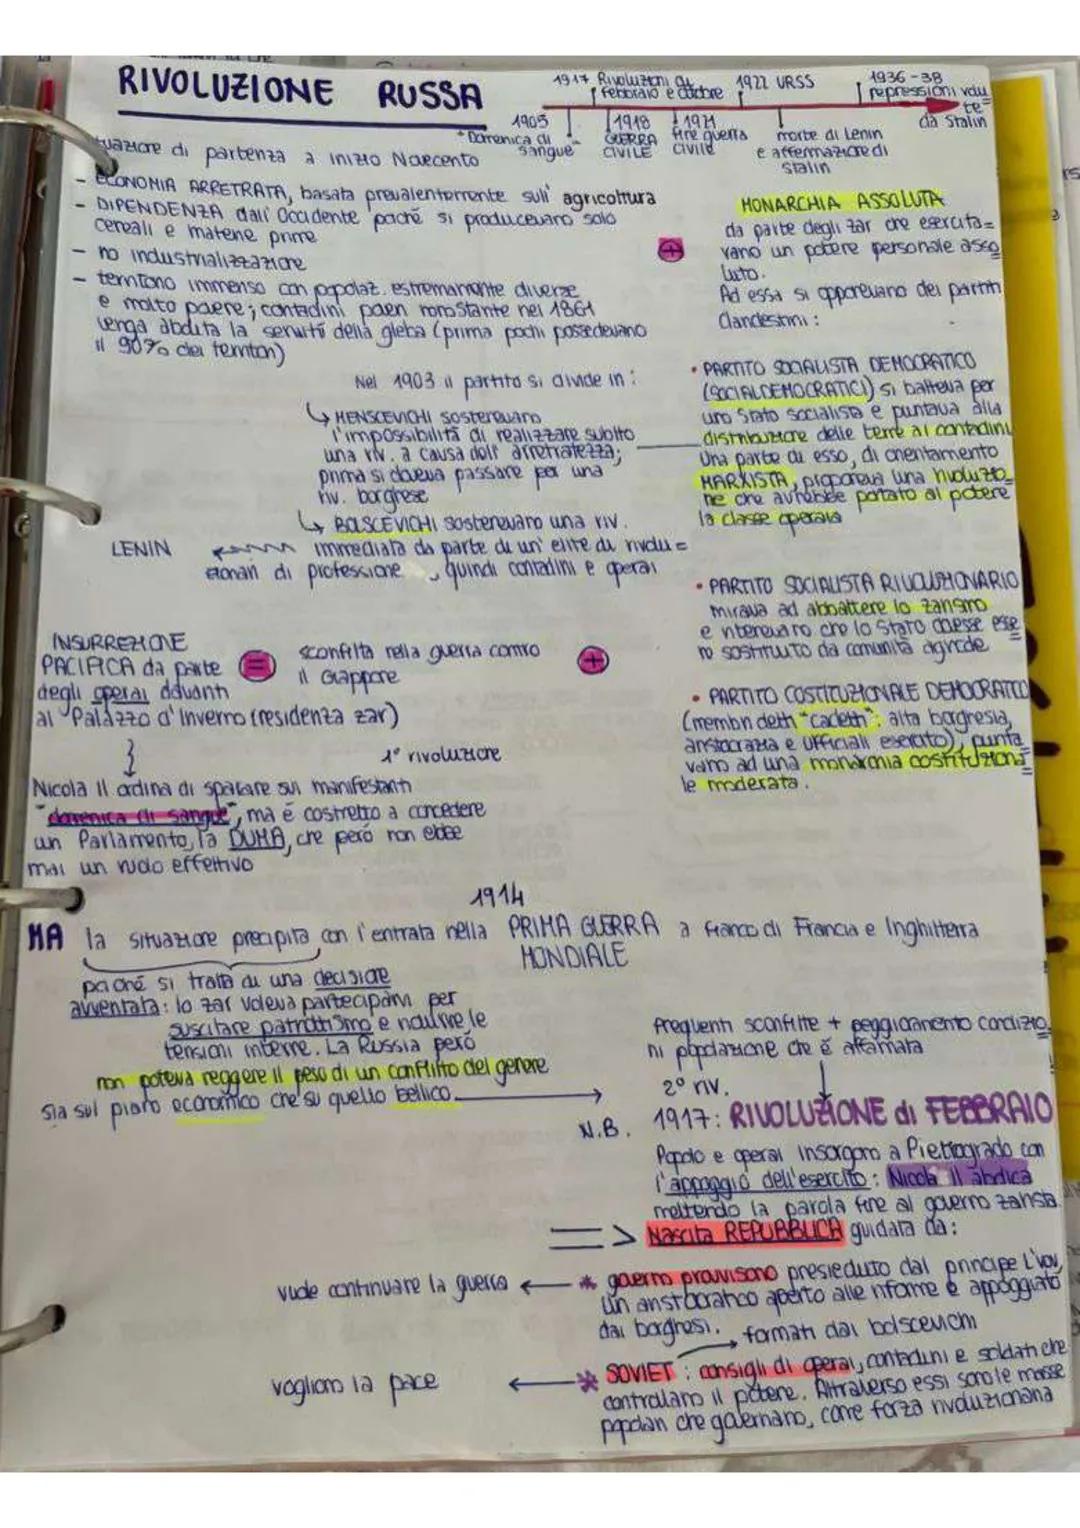 RIVOLUZIONE RUSSA
1917 Rivoluzioni di
febbraio e ottobre
1922 URSS
1936-38
repressioni volu
te
da Stalin
1905
"Domenica di
sangue
1918
GUERRA
CIVILE
1921
fine guerra
civile
morte di Lenin
e affermazione di
Stalin
situazione di partenza a inizio Novecento
- ECONOMIA ARRETRATA, basata prevalentemente sull' agricoltura
- DIPENDENZA dall' Occidente poiché si producevano solo
cereali e materie prime
- no industrializzazione
- territorio immenso con popolaz. estremamente diverse
e molto povere; contadini poveri nonostante nel 1861
venga abolita la servitù della gleba (prima pochi possedevano
il 90% dei territori)
+
MONARCHIA ASSOLUTA
da parte degli zar che esercita=
vano un potere personale asso
luto.
Ad essa si opponevano dei partiti
clandestini:
• PARTITO SOCIALISTA DEMOCRATICO
(SOCIALDEMOCRATICI) si batteva per
uno Stato socialista e puntava alla
distribuzione delle terre ai contadini
Una parte di esso, di orientamento
MARXISTA, proponeva una rivoluzio
ne che avrebbe portato al potere
la classe operaia
Nel 1903 il partito si divide in:
↳ MENSCEVICHI sostenevano
l'impossibilità di realizzare subito
una riv. a causa dell' arretratezza;
prima si doveva passare per una
riv. borghese
↳ BOLSCEVICHI sostenevano una riv.
LENIN
immediata da parte di un' elite di rivolu=
zionari di professione, quindi contadini e operai
• PARTITO SOCIALISTA RIVOLUZIONARIO
mirava ad abbattere lo zarismo
e ritenevano che lo Stato dovesse esse
re sostituito da comunità agricole
• PARTITO COSTITUZIONALE DEMOCRATICO
(membri detti "cadetti": alta borghesia,
aristocrazia e ufficiali esercito), punta
vano ad una monarchia costituziona=
le moderata.
INSURREZIONE
PACIFICA da parte
degli operai davanti
al Palazzo d'Inverno (residenza zar)
=
sconfitta nella guerra contro
il Giappone
+
1° rivoluzione
Nicola II ordina di sparare sui manifestanti
"domenica di sangue", ma è costretto a concedere
un Parlamento, la DUMA, che però non ebbe
mai un ruolo effettivo
1914
MA la situazione precipita con l'entrata nella PRIMA GUERRA a fianco di Francia e Inghilterra
MONDIALE
poiché si tratta di una decisione
avventata: lo zar voleva parteciparvi per
suscitare patriottismo e ridurre le
tensioni interne. La Russia però
non poteva reggere il peso di un conflitto del genere
sia sul piano economico che su quello bellico.
frequenti sconfitte + peggioramento condizio
ni popolazione che è affamata
2° riv.
N.B. 1917: RIVOLUZIONE di FEBBRAIO
Popolo e operai insorgono a Pietrogrado con
l'appoggio dell'esercito: Nicola II abdica
mettendo la parola fine al governo zarista.
=> Nascita REPUBBLICA guidata da:
vuole continuare la guerra ← * governo provvisorio presieduto dal principe L'vov,
un aristocratico aperto alle riforme e appoggiato
dai borghesi.
formati dai bolscevichi
vogliono la pace ← * SOVIET: consigli di operai, contadini e soldati che
controllano il potere. Attraverso essi sono le masse
popolari che governano, come forza rivoluzionaria